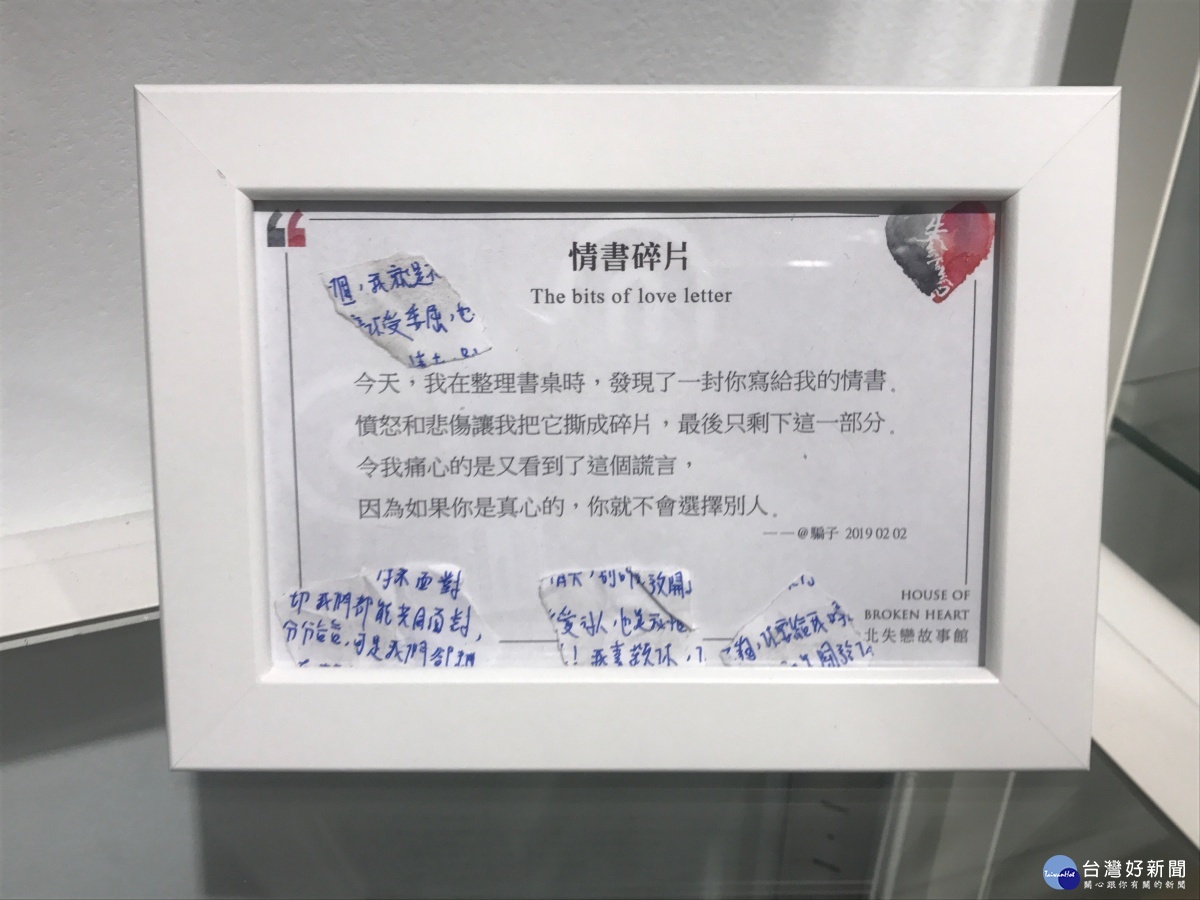 情書碎片
The bits of love letter
個，我就是不
受委屈，也
今天，我在整理書桌時，發現了一封你寫給我的情書。
憤怒和悲傷讓我把它撕成碎片，最後只剩下這一部分。
令我痛心的是又看到了這個謊言，
因為如果你是真心的，你就不會選擇別人。
——@騙子 2019 02 02
來面對
切我們都能共同面對，
可是我們都
放開
！我喜歡你，
HOUSE OF
BROKEN HEART
北失戀故事館
台灣好新聞
TaiwanHot
關心跟你有關的新聞